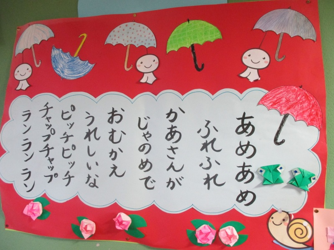 あめあめ
ふれふれ
かあさんが
じゃのめで
おむかえ
うれしいな
ピッチピッチ
チャップチャップ
ランランラン